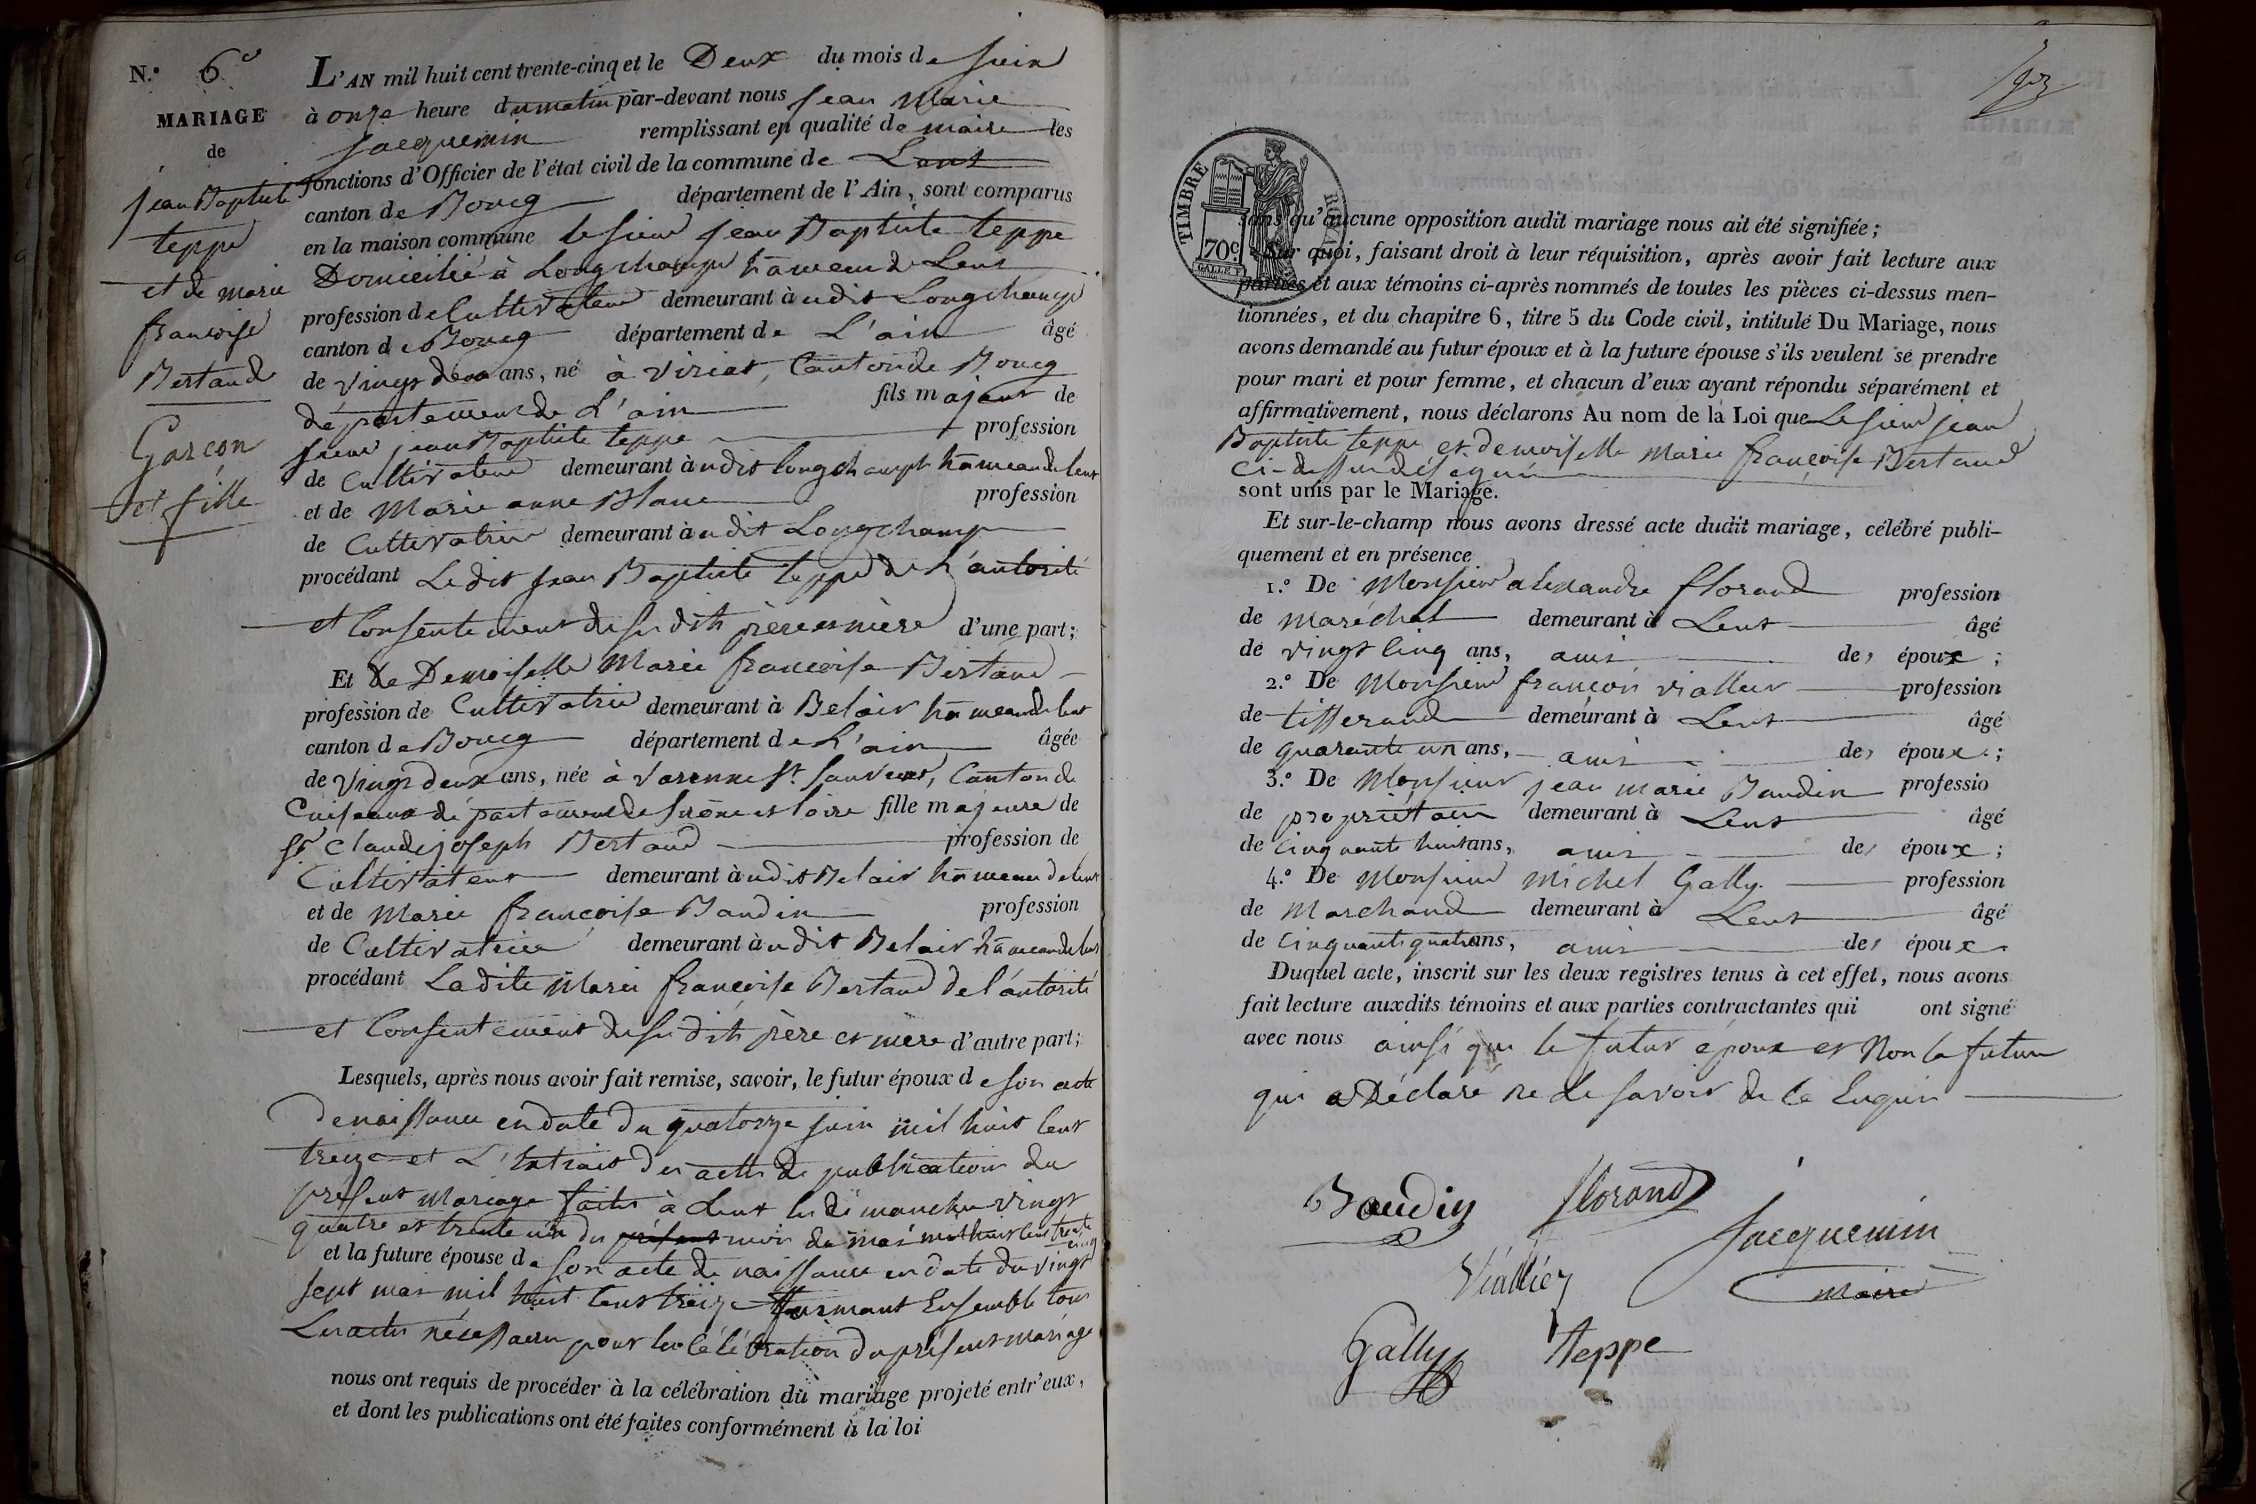 N.º 6e
MARIAGE
de
jean Baptiste
teppe
et de marie
françoise
Bertand
Garcon
et fille
L'AN mil huit cent trente-cinq et le Deux du mois de juin
à onze heure du matin par-devant nous jean Marie
jacquemin remplissant en qualité de maire les
fonctions d'Officier de l'état civil de la commune de Lent
canton de Bourg département de l'Ain, sont comparus
en la maison commune le sieur jean Baptiste teppe
Domicilié à Longchamp hameau de Lent
profession de Cultivateur demeurant à udit Longchamp
canton de Bourg département de L'ain âgé
de vingt deux ans, né à viriat, Canton de Bourg
département de L'ain fils majeur de
sieur jean Baptiste teppe profession
de Cultivateur demeurant à udit longchamp hameau de lent
et de Marie anne Blanc profession
de Cultivatrice demeurant à udit Longchamp
procédant Ledit jean Baptiste teppe de L'autorité
et Consentement desesdits père et mère d'une part;
Et De Demoiselle Marie françoise Bertand
profession de Cultivatrice demeurant à Belair hameau de lent
canton de Bourg département de L'ain âgée
de vingt deux ans, née à varenne St Sauveur, Canton de
Cuiseaux département de saone et loire fille majeure de
Sr Claude joseph Bertand profession de
Cultivateur demeurant à udit Belair hameau de lent
et de Marie françoise Baudin profession
de Cultivatrice demeurant à udit Belair hameau de lent
procédant Ladite Marie françoise Bertand de l'autorité
et Consentement desesdits père et mère d'autre part;
Lesquels, après nous avoir fait remise, savoir, le futur époux de son acte
de naissance en date du quatorze juin mil huit Cent
treize et L'Extrait des actes de publication du
présent Mariage faites à Lent les dimanches vingt
quatre et trente un du présent mois de mai mil huit cent trente cinq
et la future épouse de son acte de naissance en date du vingt
sept mai mil huit Cent treize formant Ensemble tous
Les actes nécessaires pour la Célébration du présent mariage
nous ont requis de procéder à la célébration du mariage projeté entr'eux,
et dont les publications ont été faites conformément à la loi
TIMBRE ROYAL
70c
GALLE
sans qu'aucune opposition audit mariage nous ait été signifiée;
Sur quoi, faisant droit à leur réquisition, après avoir fait lecture aux
parties et aux témoins ci-après nommés de toutes les pièces ci-dessus men-
tionnées, et du chapitre 6, titre 5 du Code civil, intitulé Du Mariage, nous
avons demandé au futur époux et à la future épouse s'ils veulent se prendre
pour mari et pour femme, et chacun d'eux ayant répondu séparément et
affirmativement, nous déclarons Au nom de la Loi que Le sieur jean
Baptiste teppe et demoiselle Marie françoise Bertand
Ci-dessus désigné
sont unis par le Mariage.
Et sur-le-champ nous avons dressé acte dudit mariage, célébré publi-
quement et en présence
1.º De Monsieur alexandre florand profession
de maréchal demeurant à Lent âgé
de vingt Cinq ans, amis des époux;
2.º De Monsieur françois viallier profession
de tisserand demeurant à Lent âgé
de quarante un ans, amis des époux;
3.º De Monsieur jean marie Baudin professio
de propriétaire demeurant à Lent âgé
de Cinquante huit ans, amis des époux;
4.º De Monsieur Michel Gally profession
de Marchand demeurant à Lent âgé
de Cinquante quatre ans, amis des époux
Duquel acte, inscrit sur les deux registres tenus à cet effet, nous avons
fait lecture auxdits témoins et aux parties contractantes qui ont signé
avec nous ainsi que le futur époux et Non la future
qui a Déclaré ne le savoir de ce Enquis
Baudin florand
jacquemin
Viallier maire
Gally teppe